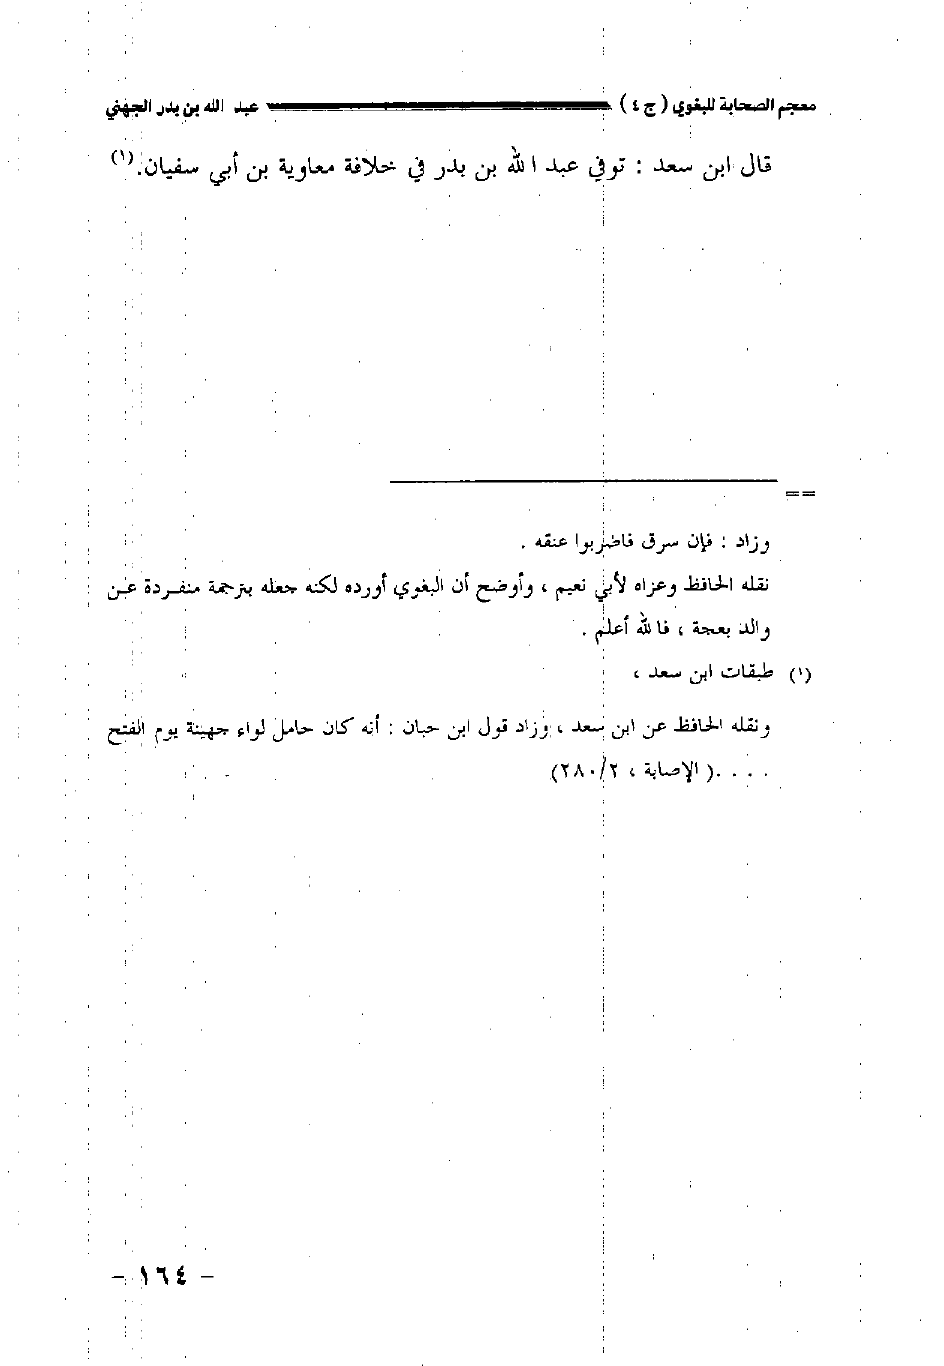 معجم الصحابة للبغوي ( ج ٤ ) عبد الله بن بدر الجهني
قال ابن سعد : توفي عبد الله بن بدر في خلافة معاوية بن أبي سفيان.(١)
==
وزاد : فإن سرق فاضربوا عنقه .
نقله الحافظ وعزاه لأبي نعيم ، وأوضح أن البغوي أورده لكنه جعله بترجمة منفردة عن
والد بعجة ، فالله أعلم .
(١) طبقات ابن سعد ،
ونقله الحافظ عن ابن سعد ، وزاد قول ابن حبان : أنه كان حامل لواء جهينة يوم الفتح
. . . .( الإصابة ، ٢٨٠/٢)
- ١٦٤ -